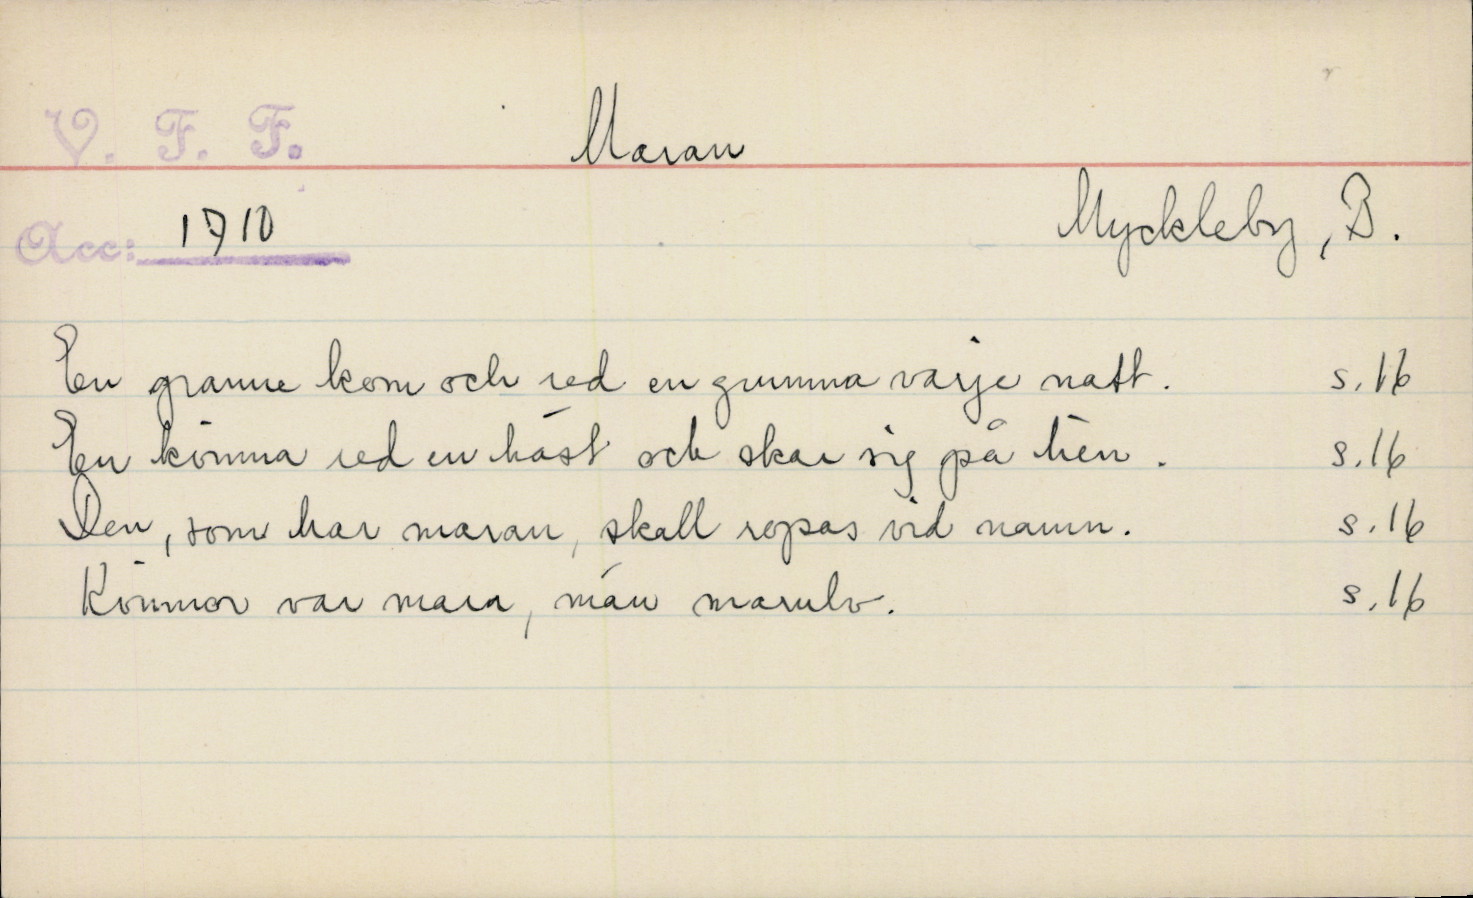 V. F. F.
Maran
Acc: 1710
Myckleby, B.
En granne kom och red en gumma varje natt. s. 16
En kvinna red en häst och skar sig på lien. s. 16
Den, som har maran, skall ropas vid namn. s. 16
Kvinnor var mara, män marulv. s. 16